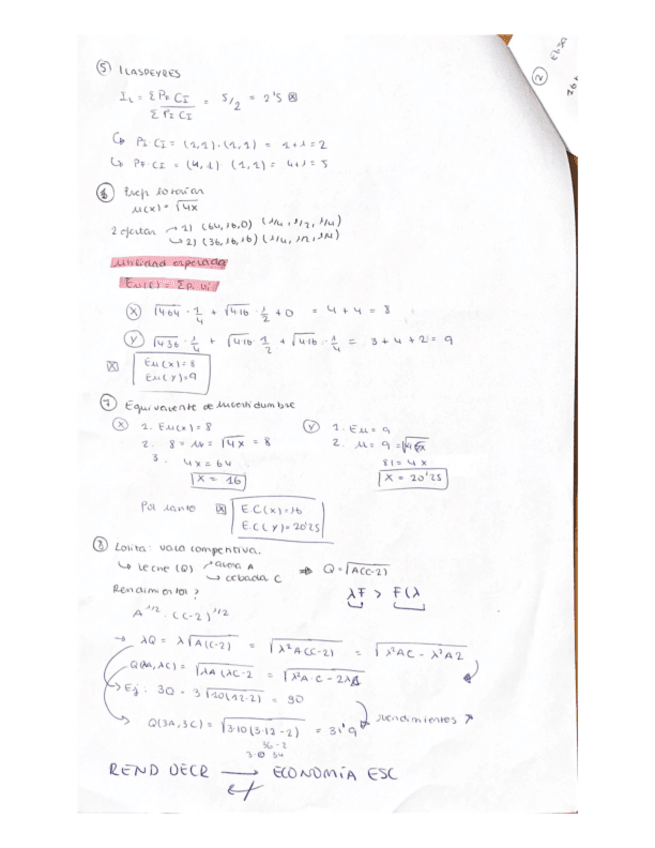 5 ILASPEYRES
IL = ΣPF CI / ΣPI CI = 5/2 = 2'5
PI·CI = (1,1)·(1,1) = 1+1=2
PF·CI = (4,1)·(1,1) = 4+1=5
6
u(x) = √4x
2 ofertas 1) (64,16,0) (1/4, 1/2, 1/4)
2) (36,16,16) (1/4, 1/2, 1/4)
Utilidad esperada
Eu(x) = Σpi ui
X √4·64 · 1/4 + √4·16 · 1/2 + 0 = 4+4 = 8
Y √4·36 · 1/4 + √4·16 · 1/2 + √4·16 · 1/4 = 3+4+2 = 9
Eu(x)=8
Eu(y)=9
7 Equivalente de incertidumbre
X 1. Eu(x)=8 Y 1. Eu = 9
2. 8 = u = √4x = 8 2. u = 9 = √4x
3. 4x = 64 81 = 4x
x = 16 x = 20'25
Por tanto E.C(x)=16
E.C(y)=20'25
8 Lorita: vaca competitiva.
leche (Q) avena A ⇒ Q = √A(C-2)
cebada C
Rendimientos? λF > F(λ
A^1/2 · (C-2)^1/2
→ λQ = λ√A(C-2) = √λ²A(C-2) = √λ²AC - λ²A2
Q(λA, λC) = √λA(λC-2 = √λ²A·C - 2λA
Ej: 3Q = 3√10(12-2) = 30
Q(3A,3C) = √3·10(3·12-2) = 31'9 rendimientos ↗
36-2
3·10 34
REND DECR → ECONOMÍA ESC
2